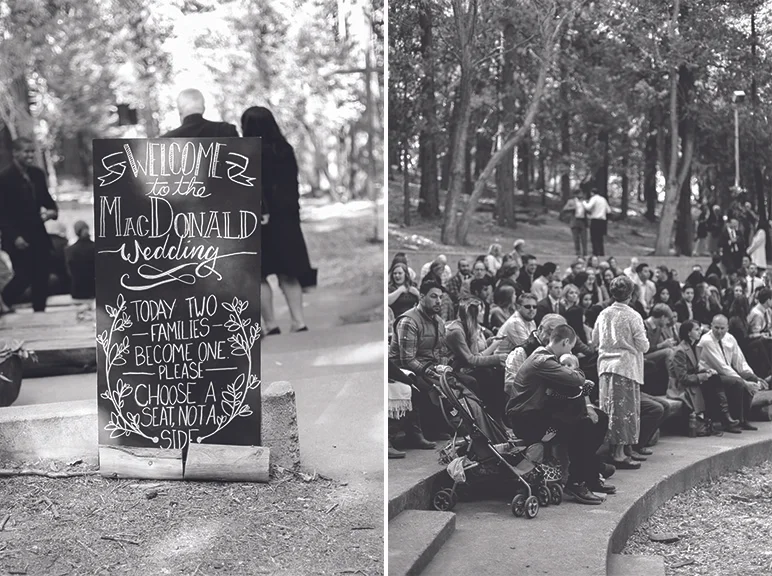 WELCOME
to the
MACDONALD
Wedding
TODAY TWO
FAMILIES
BECOME ONE.
PLEASE
CHOOSE A
SEAT, NOT A
SIDE